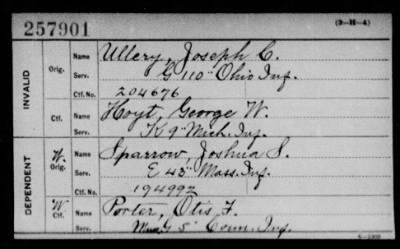 257901
(3-H-4)
INVALID
Orig.
Name Ullery, Joseph C.
Serv. G 110" Ohio Inf.
Ctf. No. 204676
Ctf.
Name Hoyt, George W.
Serv. K 9" Mich. Inf.
DEPENDENT
W.
Orig.
Name Sparrow, Joshua S.
Serv. E 43" Mass. Inf.
Ctf. No. 194992
W
Ctf.
Name Porter, Otis F.
Serv. G 5" Conn. Inf.